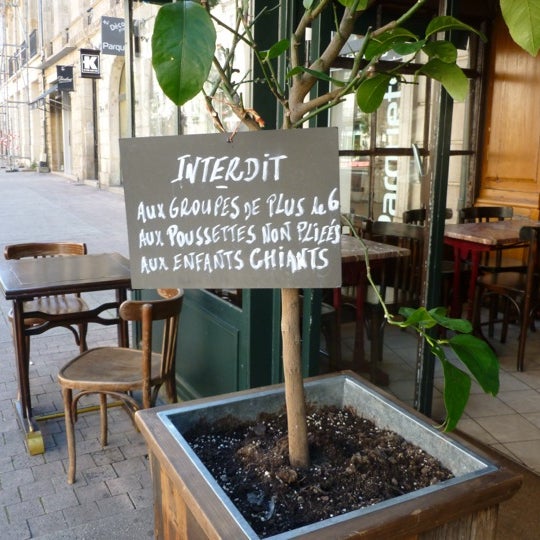 Déco
Parquet
K
INTERDIT
AUX GROUPES DE PLUS de 6
AUX POUSSETTES NON PLIÉES
AUX ENFANTS CHIANTS